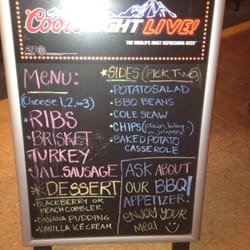 Coors LIGHT LIVE!
"THE WORLD'S MOST REFRESHING BEER"
MENU:
(Choose 1, 2, or 3)
RIBS
BRISKET
TURKEY
JAL. SAUSAGE
*DESSERT
BLACKBERRY OR
PEACH COBBLER
BANANA PUDDING
VANILLA ICE CREAM
*SIDES (PICK TWO)
POTATO SALAD
BBQ BEANS
COLE SLAW
CHIPS (plain, bbq,
or jalapeno)
BAKED POTATO
CASSEROLE
ASK ABOUT
OUR BBQ
APPETIZER!
ENJOY YOUR
MEAL